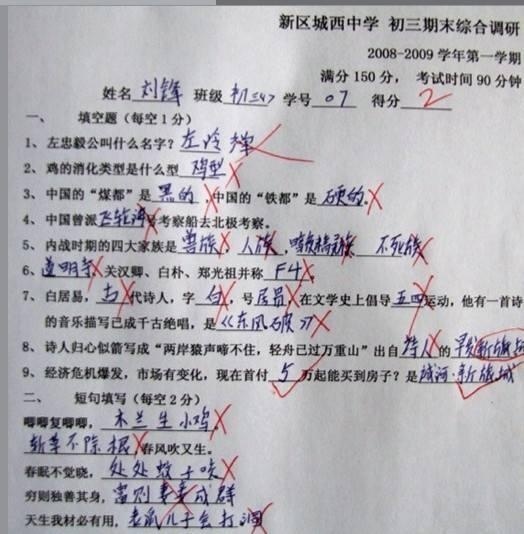 新区城西中学 初三期末综合调研
2008-2009 学年第一学期
满分 150 分， 考试时间 90 分钟
姓名 刘锋 班级 初三<4> 学号 07 得分 2
一、 填空题（每空 1 分）
1、左忠毅公叫什么名字？左冷禅
2、鸡的消化类型是什么型 鸡型
3、中国的“煤都”是 黑的 ,中国的“铁都”是 硬的。
4、中国曾派 号考察船去北极考察。
5、内战时期的四大家族是 兽族 人族, 暗夜精灵族 不死族
6、道明寺、关汉卿、白朴、郑光祖并称 F4
7、白居易， 古 代诗人，字 白 ，号 居易，在文学史上倡导 五四 运动，他有一首诗
的音乐描写已成千古绝唱，是《东风破》
8、诗人归心似箭写成“两岸猿声啼不住，轻舟已过万重山”出自 诗人 的
9、经济危机爆发，市场有变化，现在首付 5 万起能买到房子？是 域河·新旅城
二、 短句填写（每空 2 分）
唧唧复唧唧， 木兰生小鸡。
斩草不除根，春风吹又生。
春眠不觉晓， 处处蚊子咬
穷则独善其身， 富则妻妾成群
天生我材必有用，老鼠儿子会打洞